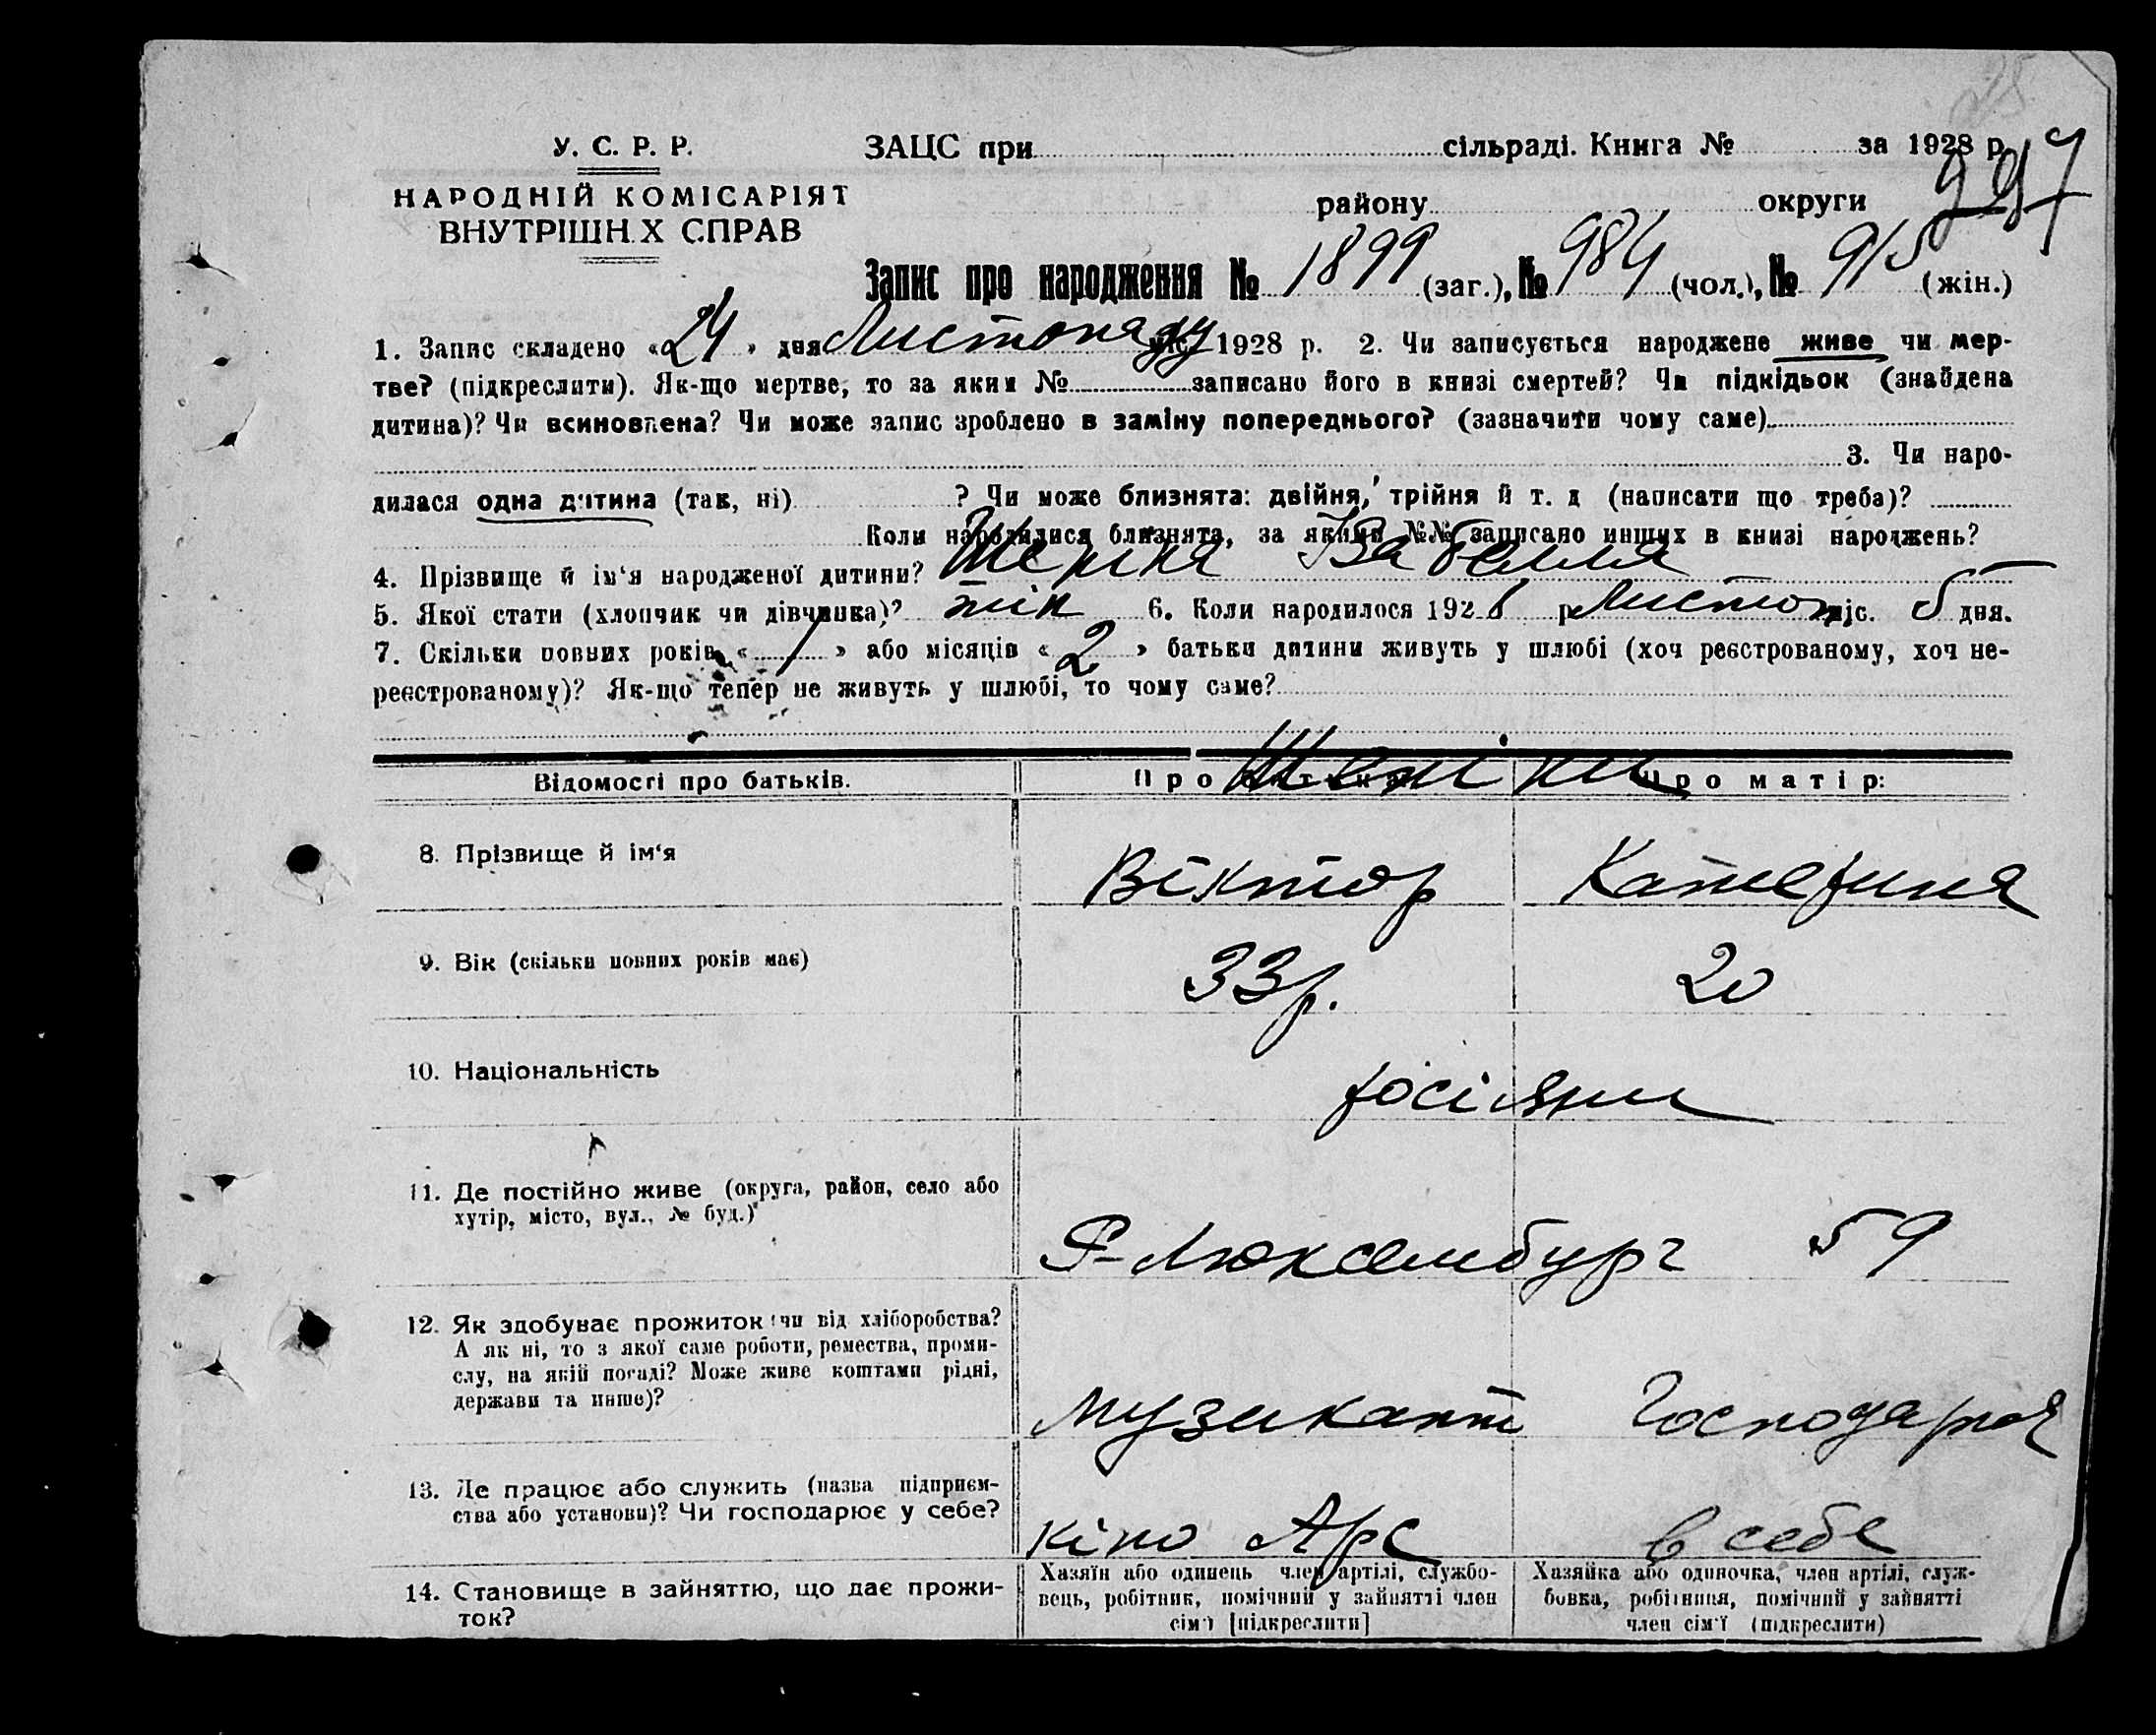 У. С. Р. Р.
ЗАЦС при сільраді. Книга № за 1928 р.
997
НАРОДНІЙ КОМІСАРІЯТ
ВНУТРІШН.Х СПРАВ
району округи
Запис про народження № 1899 (заг.), № 984 (чол.), № 915 (жін.)
1. Запис складено «24» дня Листопаду міс. 1928 р. 2. Чи записується народжене живе чи мер-
тве? (підкреслити). Як-що мертве, то за яким № записано його в книзі смертей? Чи підкідьок (знайдена
дитина)? Чи всиновлена? Чи може запис зроблено в заміну попереднього? (зазначити чому саме)
3. Чи наро-
дилася одна дитина (так, ні) ? Чи може близнята: двійня, трійня й т. д (написати що треба)?
Коли народилися близнята, за якими №№ записано инших в книзі народжень?
4. Прізвище й ім‘я народженої дитини?
5. Якої стати (хлопчик чи дівчинка)? жін 6. Коли народилося 1928 р Листоп міс. 5 дня.
7. Скільки повних років « / » або місяців « 2 » батьки дитини живуть у шлюбі (хоч реєстрованому, хоч не-
реєстрованому)? Як-що тепер не живуть у шлюбі, то чому саме?
Відомості про батьків. Про батька: Про матір:
8. Прізвище й ім‘я Віктор Катерина
9. Вік (скільки повних років має) 33 р. 20
10. Національність росіяни
11. Де постійно живе (округа, район, село або
хутір, місто, вул., № буд.)
Р-Люксембург 59
12. Як здобуває прожиток: чи від хліборобства?
А як ні, то з якої саме роботи, ремества, проми-
слу, на якій посаді? Може живе коштами рідні,
держави та инше)?
музикант Господарка
13. Де працює або служить (назва підприєм-
ства або установи)? Чи господарює у себе?
кіно Арс в себе
14. Становище в зайняттю, що дає прожи-
ток?
Хазяїн або одинець член артілі, службо-
вець, робітник, помічний у зайнятті член
сім‘ї [підкреслити]
Хазяйка або одиночка, член артілі, служ-
бовка, робітниця, помічний у зайнятті
член сім‘ї (підкреслити)